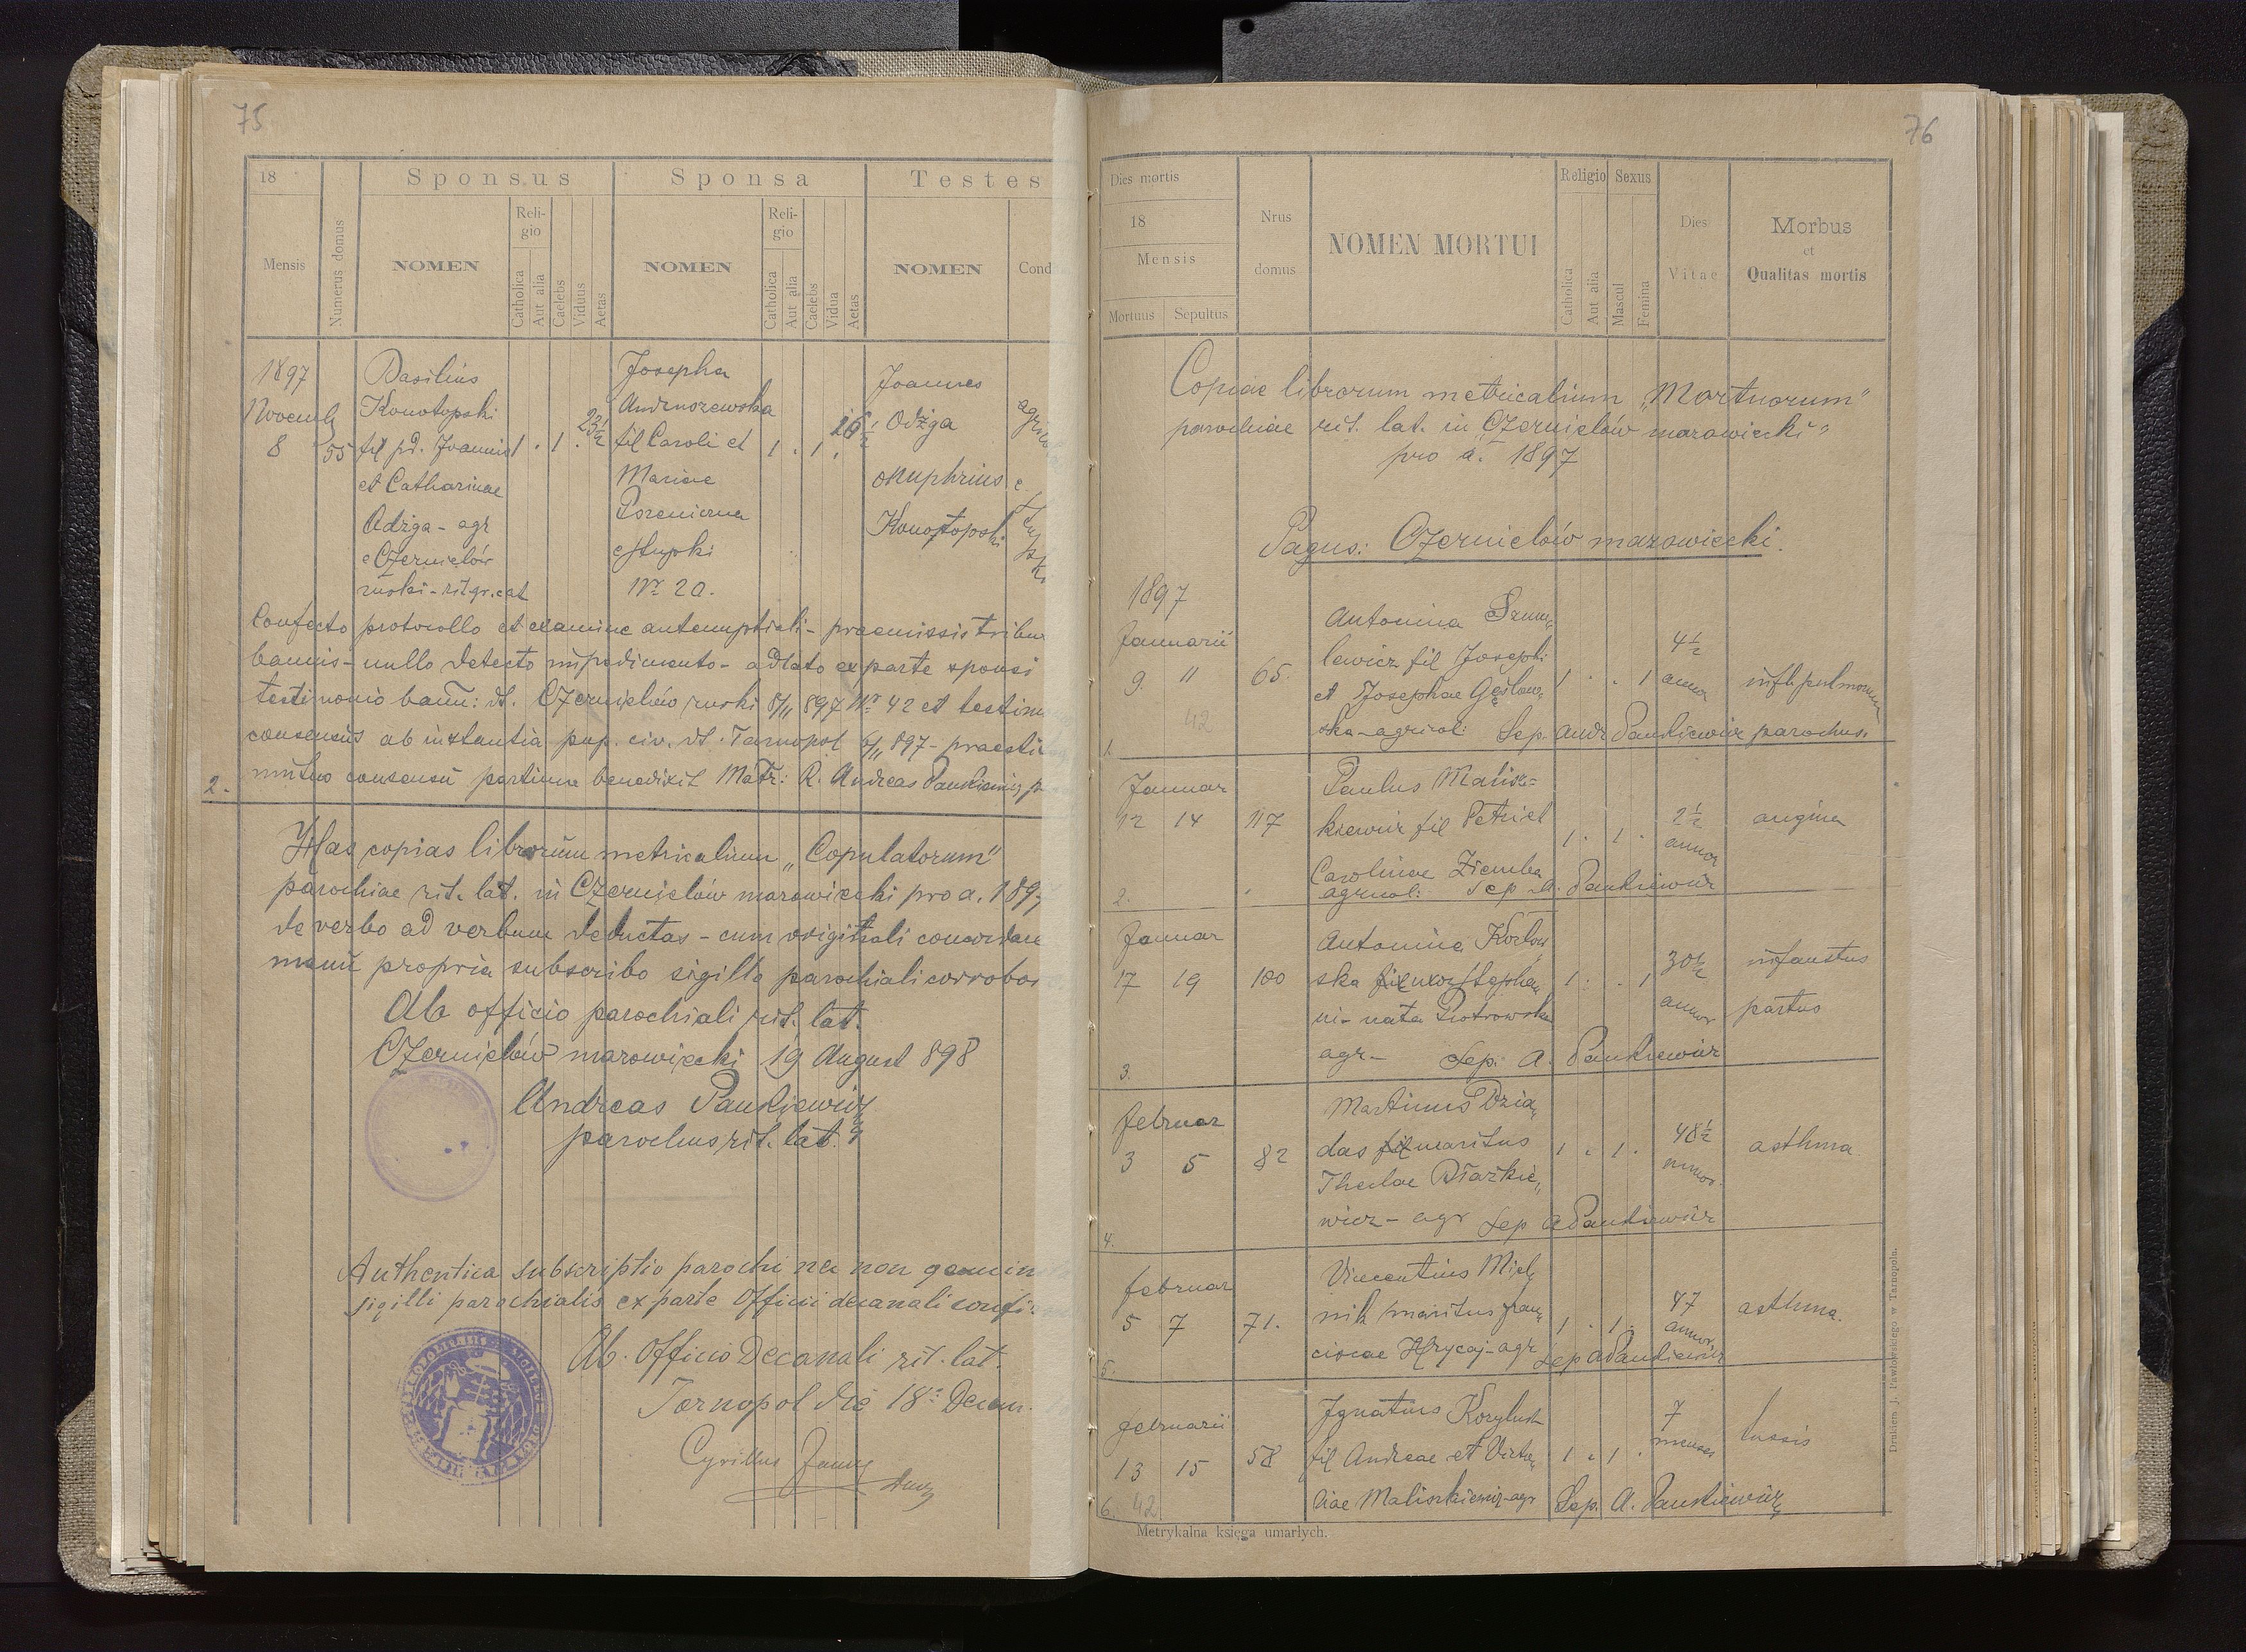 75
18
Sponsus
Sponsa
Testes
Mensis
Numerus domus
NOMEN
Reli-
gio
Catholica
Aut alia
Caelebs
Viduus
Aetas
NOMEN
Reli-
gio
Catholica
Aut alia
Caelebs
Vidua
Aetas
NOMEN
Cond
1897
Novemb
8
55
Basilius
Konotopski
fil pd. Joannis
et Catharinae
Odżga - agr
e Czernielów
ruski - rit gr. cat
1 . 1 . 23½
Josepha
fil Caroli et
Mariae
e Stupki
Nr 20.
1 . 1 . 26½
Joannes
Odżga
agric
Onuphrius
Konotopski
Confecto protocollo et examine antenuptiali - praemissis tribu
bannis - nullo detecto impedimento - adlato ex parte sponsi
testimonio bann: dt. Czernielów ruski 8/11 897 Nr 42 et testim
consensus ab instantia pup. civ. dt. Tarnopol 6/11 897 - praesti
mutuo consensu partium benedixit Matr: R. Andreas Pankiewicz p
2.
Has copias librorum metricalium „Copulatorum"
parochiae rit. lat. in Czernielów mazowiecki pro a. 1897
de verbo ad verbum deductas - cum originali concordare
manu propria subscribo sigillo parochiali corrobor
Ab officio parochiali rit. lat.
Czernielów mazowiecki 19 August 898
Andreas Pankiewicz
parochus rit. lat.
Authentica subscriptio parochi nec non genuin
sigilli parochialis ex parte Officii decanali confi
Ab. Officio Decanali rit. lat.
Tarnopol die 18a Decem.
Cyrillus
76
Dies mortis
18
Mensis
Mortuus
Sepultus
Nrus
domus
NOMEN MORTUI
Religio
Catholica
Aut alia
Sexus
Mascul
Femina
Dies
Vitae
Morbus
et
Qualitas mortis
Copiae librorum metricalium „Mortuorum"
parochiae rit. lat. in „Czernielów mazowiecki"
pro a. 1897
Pagus: Czernielów mazowiecki.
1897
Januarii
9. 11 65.
Antonina Szum„
lewicz fil Josephi
et Josephae Gęślow„
ska - agricol: Sep. Andr Pankiewicz parochus.
1 . . 1
4½
annor
infl. pulmonum
42
1.
Januar
12 14 117
Paulus Malisz-
kiewicz fil Petri et
Carolinae Ziemba
agricol: Sep A. Pankiewicz
1 . 1 .
2½
annor
angina
2.
Januar
17 19 100
Antonina Kozłow
ska fil uxor Stepha„
ni - nata Piotrowska
agr - Sep. A. Pankiewicz
1 . . 1
30½
annor
infaustus
partus
3.
Februar
3 5 82
Martinus Dzia„
das fil maritus
Theclae Błażkie„
wicz - agr Sep A Pankiewicz
1 . 1 .
48½
annor.
asthma
4.
Februar
5 7 71.
Vincentius Miel„
nik maritus Fran„
ciscae Hrycaj - agr Sep A Pankiewicz
1 . 1 .
47
annor.
asthma.
5.
Februarii
13 15 58
Ignatius Koryluch
fil Andreae et Victo„
riae Maliszkiewicz - agr Sep. A. Pankiewicz
1 . 1 .
7
menses
tussis
6.
42
Metrykalna księga umarłych.
Drukiem J. Pawłowskiego w Tarnopolu.